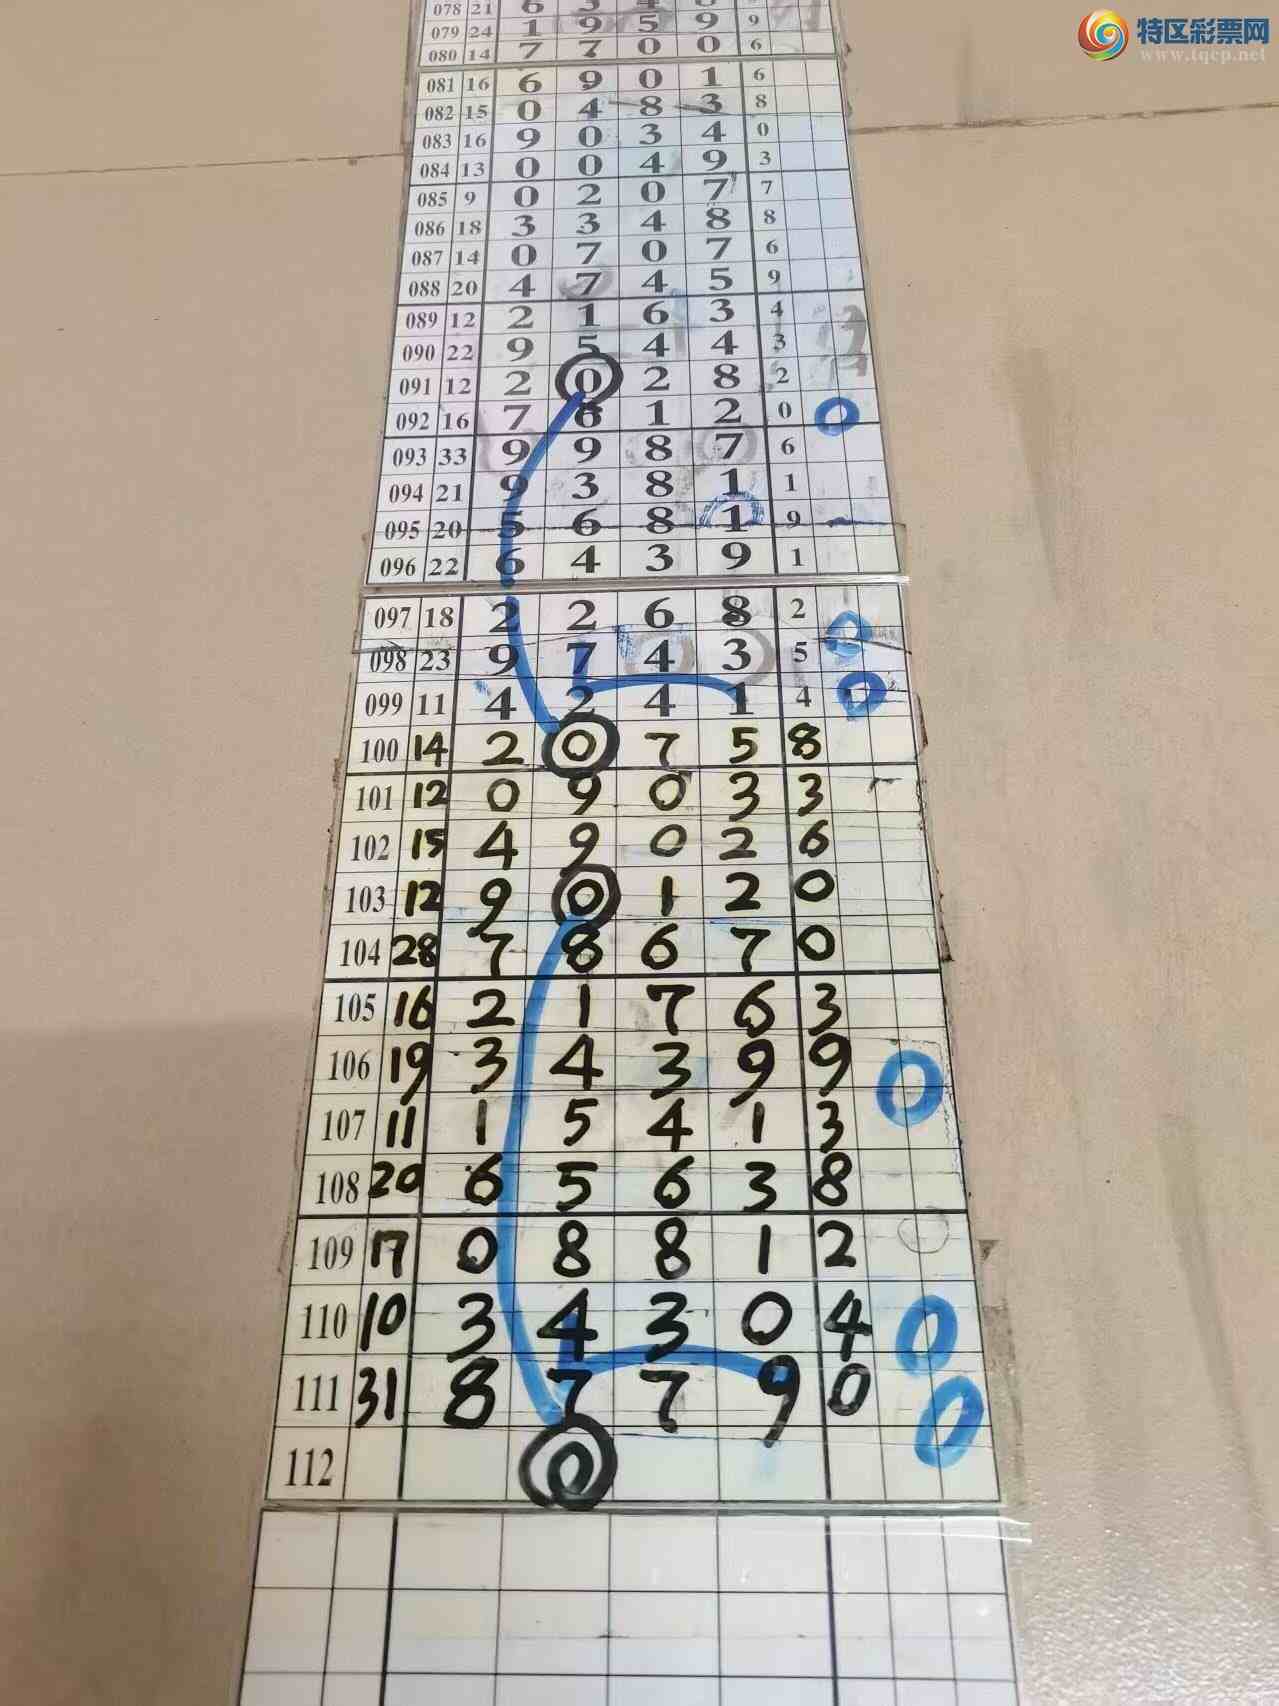 特区彩票网
www.tqcp.net
078 21 6 3 4 8
079 24 1 9 5 9 9
080 14 7 7 0 0 6
081 16 6 9 0 1 6
082 15 0 4 8 3 8
083 16 9 0 3 4 0
084 13 0 0 4 9 3
085 9 0 2 0 7 7
086 18 3 3 4 8 8
087 14 0 7 0 7 6
088 20 4 7 4 5 9
089 12 2 1 6 3 4
090 22 9 5 4 4 3
091 12 2 0 2 8 2
092 16 7 6 1 2 0 0
093 33 9 9 8 7 6
094 21 9 3 8 1 1
095 20 5 6 8 1 9
096 22 6 4 3 9 1
097 18 2 2 6 8 2
098 23 9 7 4 3 5 0
099 11 4 2 4 1 4 0
100 14 2 0 7 5 8
101 12 0 9 0 3 3
102 15 4 9 0 2 6
103 12 9 0 1 2 0
104 28 7 8 6 7 0
105 16 2 1 7 6 3
106 19 3 4 3 9 9 0
107 11 1 5 4 1 3
108 20 6 5 6 3 8
109 17 0 8 8 1 2
110 10 3 4 3 0 4 0
111 31 8 7 7 9 0 0
112 0